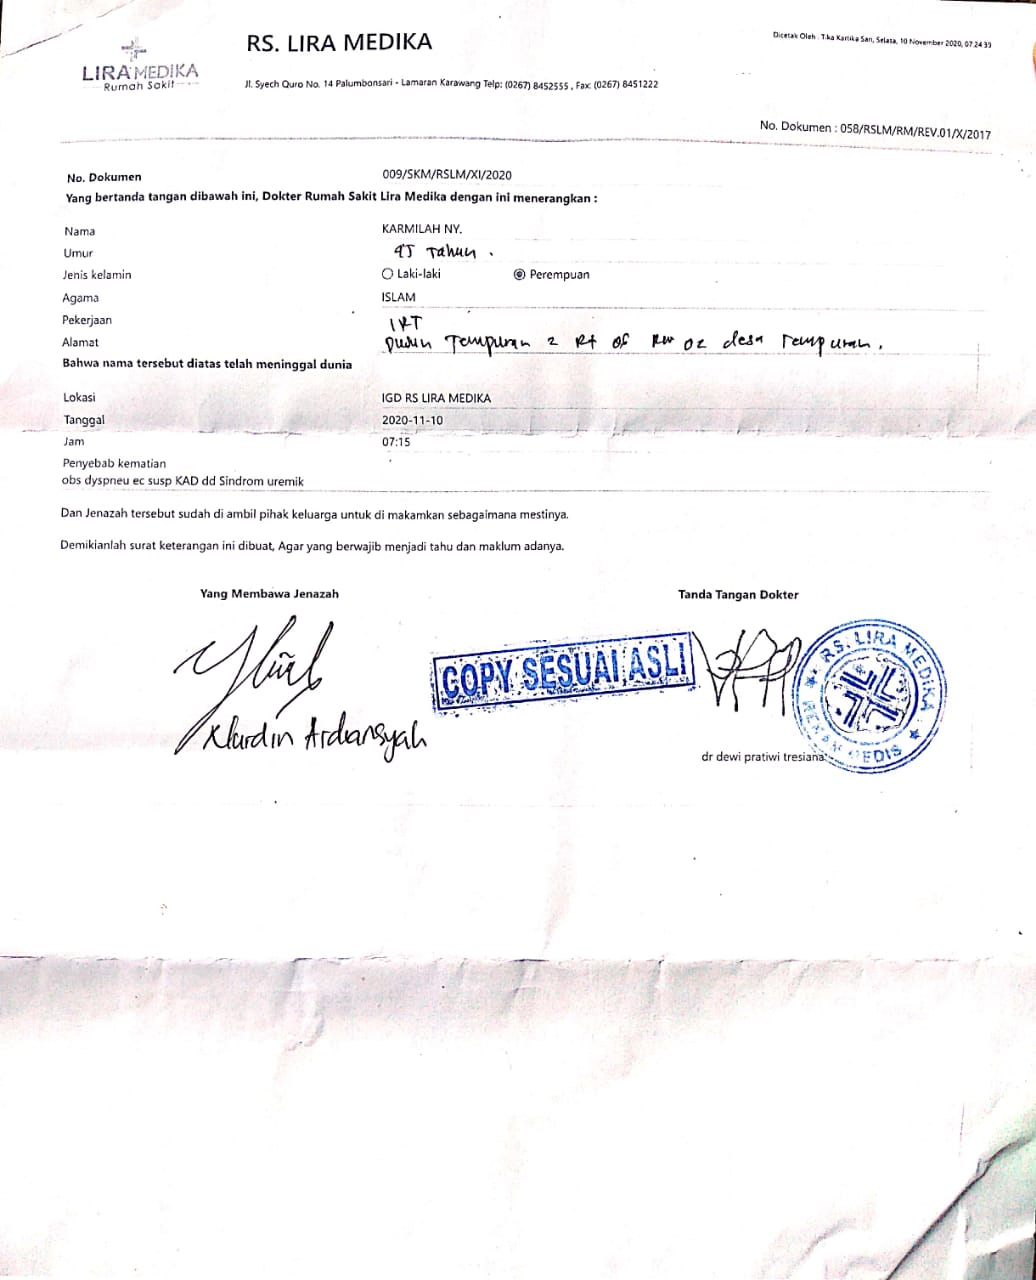 RS. LIRA MEDIKA
Dicetak Oleh : Tika Kartika Sari, Selasa, 10 November 2020, 07:24:39
LIRA MEDIKA
Rumah Sakit
Jl. Syech Quro No. 14 Palumbonsari - Lamaran Karawang Telp: (0267) 8452555 , Fax: (0267) 8451222
No. Dokumen : 058/RSLM/RM/REV.01/X/2017
No. Dokumen 009/SKM/RSLM/XI/2020
Yang bertanda tangan dibawah ini, Dokter Rumah Sakit Lira Medika dengan ini menerangkan :
Nama KARMILAH NY.
Umur Tahun .
Jenis kelamin Laki-laki Perempuan
Agama ISLAM
Pekerjaan IRT
Alamat Dusun Tempuran 2 Rt Rw 02 desa Tempuran.
Bahwa nama tersebut diatas telah meninggal dunia
Lokasi IGD RS LIRA MEDIKA
Tanggal 2020-11-10
Jam 07:15
Penyebab kematian
obs dyspneu ec susp KAD dd Sindrom uremik
Dan Jenazah tersebut sudah di ambil pihak keluarga untuk di makamkan sebagaimana mestinya.
Demikianlah surat keterangan ini dibuat, Agar yang berwajib menjadi tahu dan maklum adanya.
Yang Membawa Jenazah Tanda Tangan Dokter
COPY SESUAI ASLI
RS. LIRA MEDIKA
REKAM MEDIS
Ardiansyah
dr dewi pratiwi tresiana